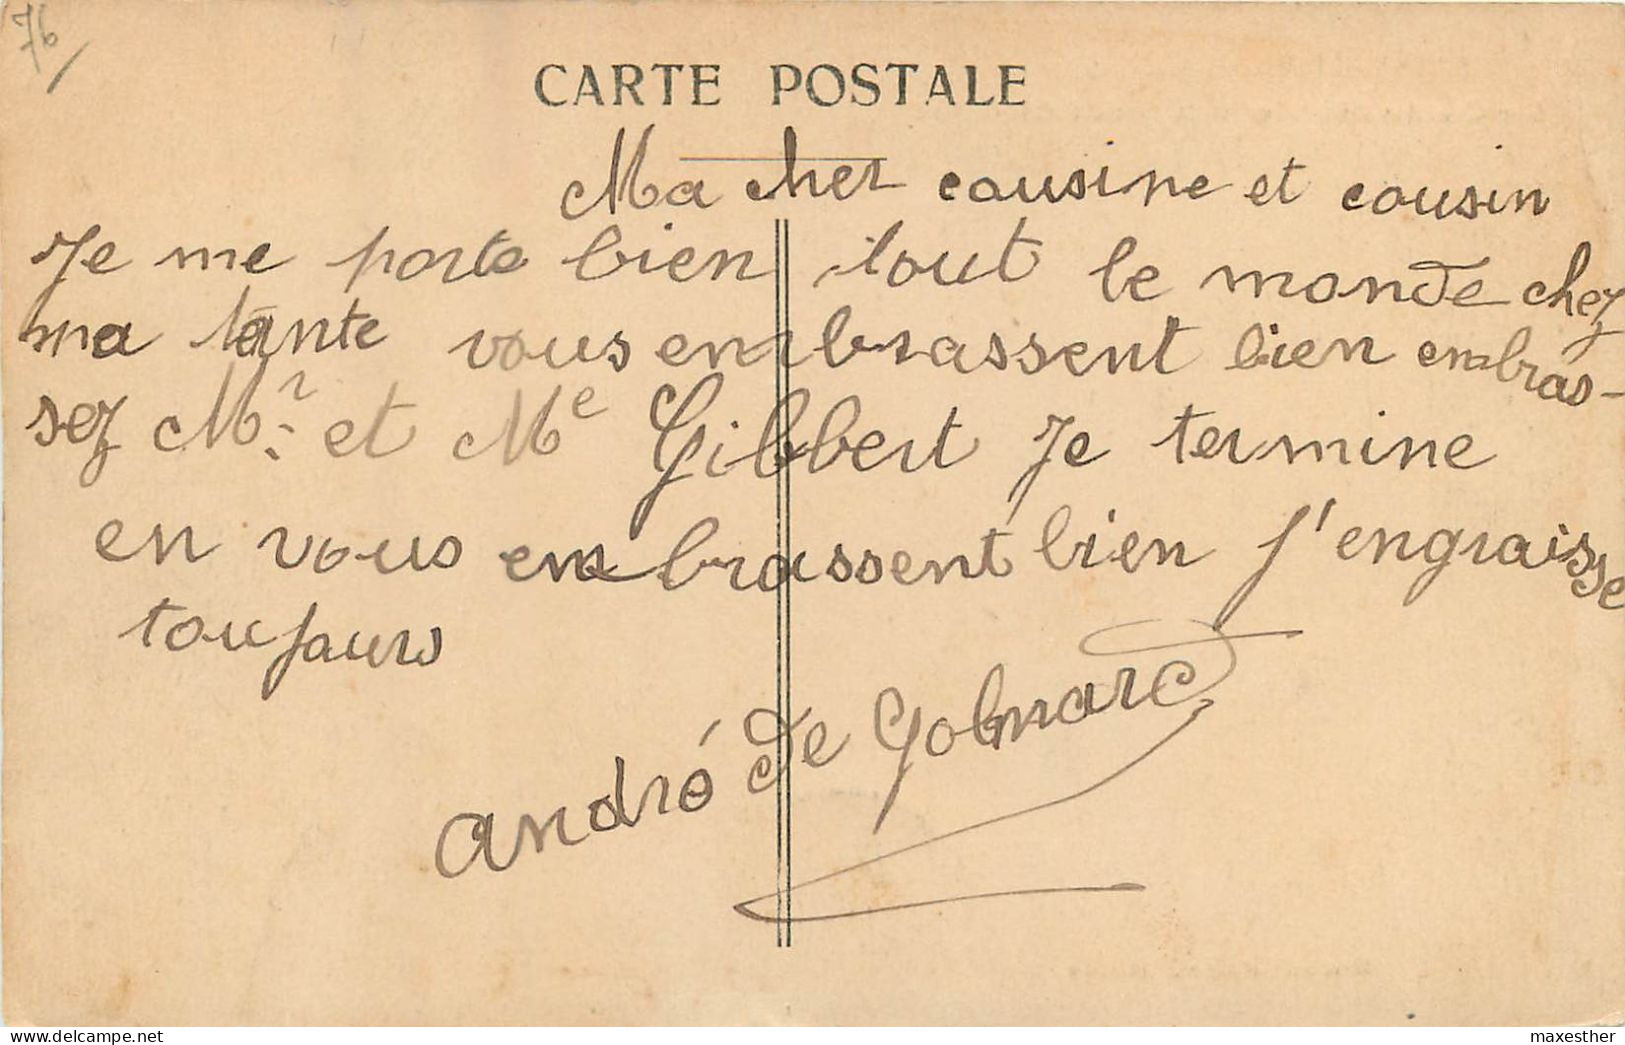 76
CARTE POSTALE
Ma cher cousine et cousin
Je me porte bien tout le monde chez
ma tante vous embrassent bien embras-
sez Mr. et Me Gilbert Je termine
en vous embrassent bien j'engraisse
toujours
andré de
delcampe.net
maxesther